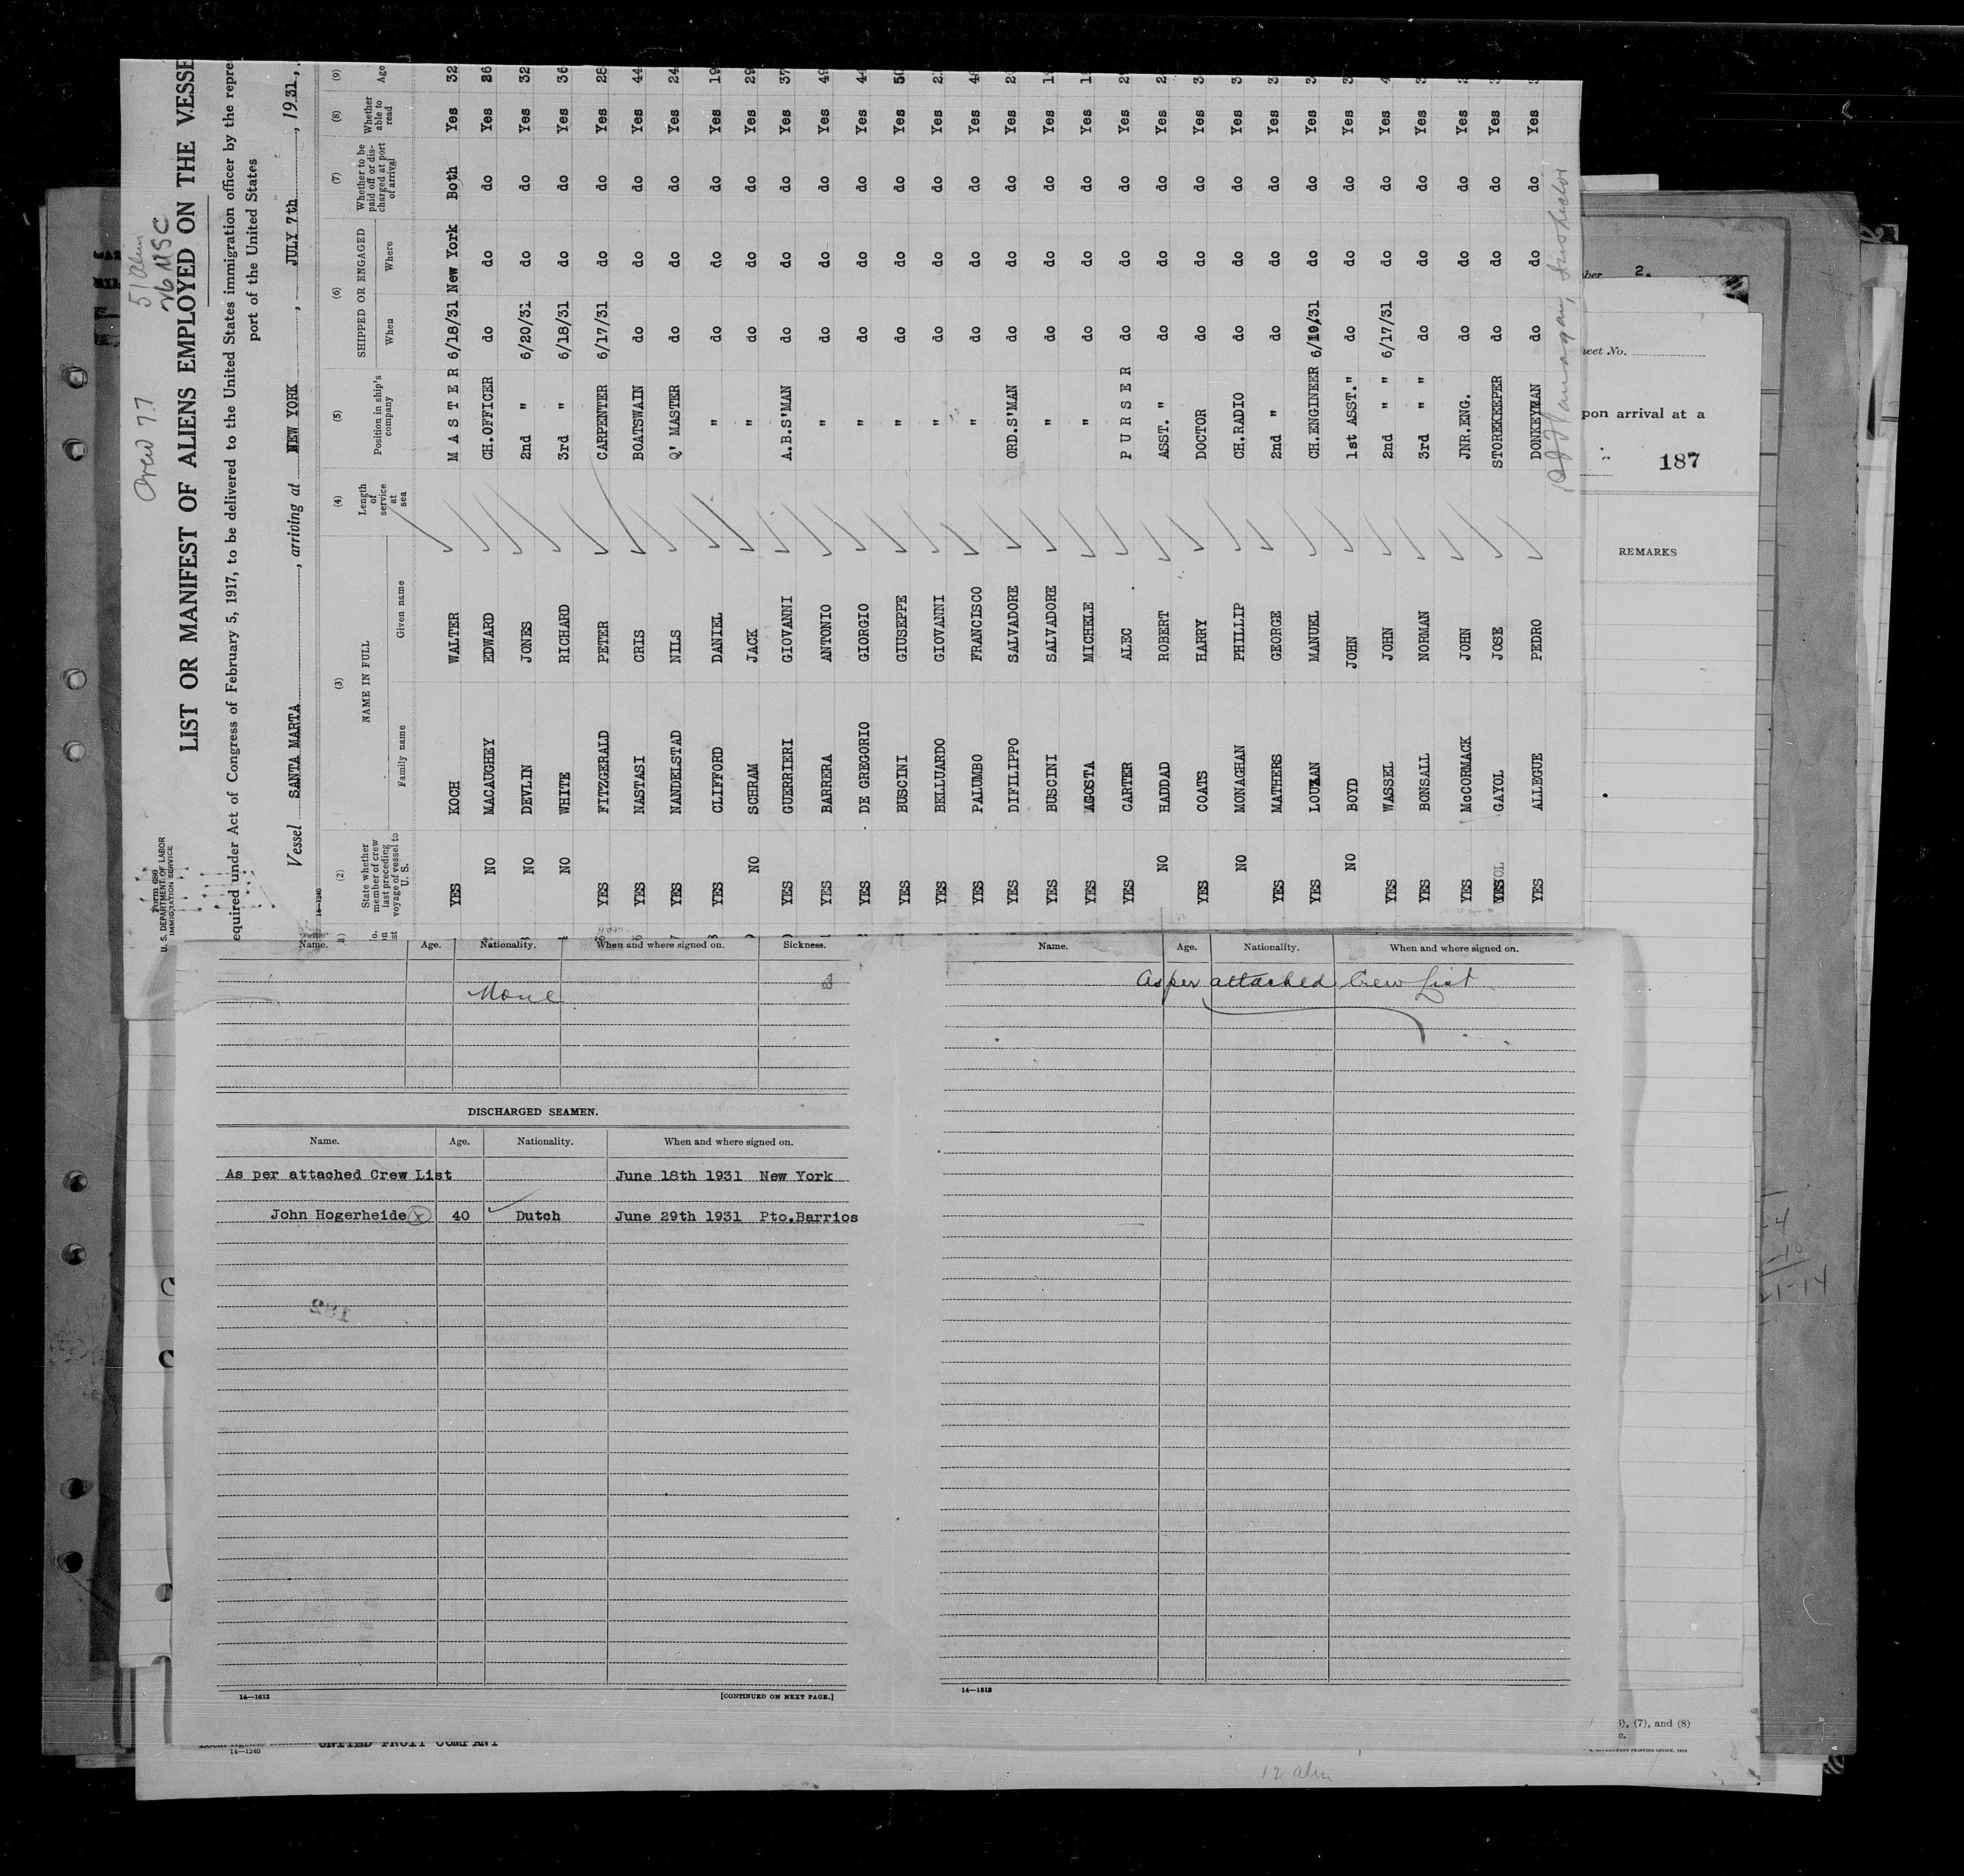 Crew 77
51 Alien
26 USC
Form 680
U. S. DEPARTMENT OF LABOR
IMMIGRATION SERVICE
LIST OR MANIFEST OF ALIENS EMPLOYED ON THE VESSE
equired under Act of Congress of February 5, 1917, to be delivered to the United States immigration officer by the repre
port of the United States
Vessel SANTA MARTA, arriving at NEW YORK, JULY 7th, 1931,
14-1240
(2) (3) (4) (5) (6) (7) (8) (9)
State whether member of crew last preceding voyage of vessel to U. S. NAME IN FULL Length of service at sea Position in ship's company SHIPPED OR ENGAGED Whether to be paid off or discharged at port of arrival Whether able to read Age
Family name Given name When Where
YES KOCH WALTER MASTER 6/18/31 New York Both Yes 32
NO MACAUGHEY EDWARD CH.OFFICER do do do Yes 26
NO DEVLIN JONES 2nd " 6/20/31 do do Yes 32
NO WHITE RICHARD 3rd " 6/18/31 do do Yes 36
YES FITZGERALD PETER CARPENTER 6/17/31 do do Yes 28
YES NASTASI CRIS BOATSWAIN do do do Yes 44
YES NANDELSTAD NILS Q' MASTER do do do Yes 24
YES CLIFFORD DANIEL " do do do Yes 19
NO SCHRAM JACK " do do do Yes 29
YES GUERRIERI GIOVANNI A.B.S'MAN do do do Yes 37
YES BARRERA ANTONIO " do do do Yes 49
YES DE GREGORIO GIORGIO " do do do Yes 44
YES BUSCINI GIUSEPPE " do do do Yes 50
YES BELLUARDO GIOVANNI " do do do Yes
YES PALUMBO FRANCISCO " do do do Yes
YES DIFILIPPO SALVADORE ORD.S'MAN do do do Yes
YES BUSCINI SALVADORE " do do do Yes
YES AGOSTA MICHELE " do do do Yes
YES CARTER ALEC PURSER do do do Yes
NO HADDAD ROBERT ASST. " do do do Yes
YES COATS HARRY DOCTOR do do do Yes
NO MONAGHAN PHILLIP CH.RADIO do do do Yes
YES MATHERS GEORGE 2nd " do do do Yes
YES LOUZAN MANUEL CH.ENGINEER 6/19/31 do do Yes
NO BOYD JOHN 1st ASST." do do do Yes
YES WASSEL JOHN 2nd " " 6/17/31 do do Yes
YES BONSALL NORMAN 3rd " " do do do Yes
YES McCORMACK JOHN JNR.ENG. do do do Yes
YES GAYOL JOSE STOREKEEPER do do do Yes
YES ALLEGUE PEDRO DONKEYMAN do do do Yes
Inspector
2.
eet No.
pon arrival at a
187
REMARKS
Name. Age. Nationality. When and where signed on. Sickness.
None
DISCHARGED SEAMEN.
Name. Age. Nationality. When and where signed on.
As per attached Crew List June 18th 1931 New York
John Hogerheide (x) 40 Dutch June 29th 1931 Pto.Barrios
14—1613
[CONTINUED ON NEXT PAGE.]
Name. Age. Nationality. When and where signed on.
As per attached Crew List
14—1613
UNITED FRUIT COMPANY
14—1240
, (7), and (8)
12 alien